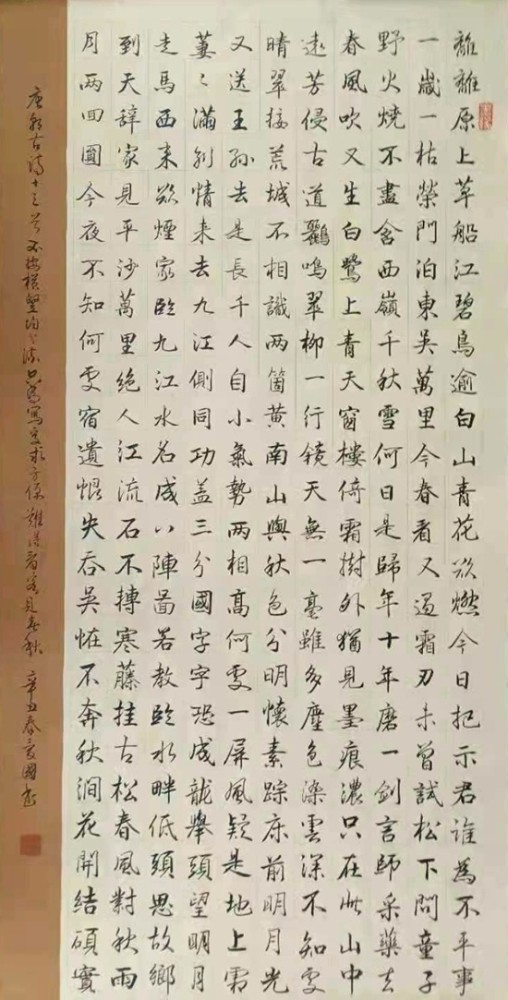 離離原上草船江碧鳥逾白山青花欲燃今日把示君誰為不平事
一歲一枯榮門泊東吳萬里今春看又過霜刃未曾試松下問童子
野火燒不盡含西嶺千秋雪何日是歸年十年磨一劍言師采藥去
春風吹又生白鷺上青天窗樓倚霜樹外猶見墨痕濃只在此山中
遠芳侵古道鸝鳴翠柳一行鏡天無一毫雖多塵色染雲深不知處
晴翠接荒城不相識兩箇黃南山與秋色分明懷素踪床前明月光
又送王孫去是長千人自小氣勢兩相高何處一屏風疑是地上霜
萋〻滿別情來去九江側同功蓋三分國字字恐成龍舉頭望明月
走馬西來欲煙家臨九江水名成八陣圖若教臨水畔低頭思故鄉
到天辭家見平沙萬里絕人江流石不轉寒藤挂古松春風對秋雨
月兩回圓今夜不知何處宿遺恨失吞吳恠不奔秋澗花開結碩實
唐朝古詩十三首 不按橫豎 寫 難 見春秋 辛丑春